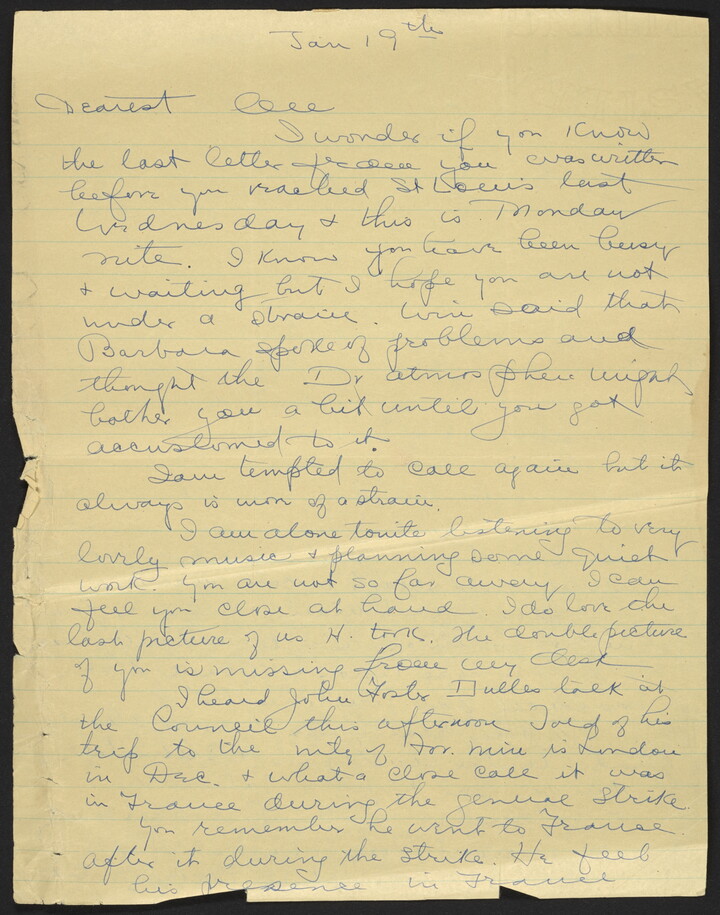 Jan 19th
Dearest
I wonder if you know
the last letter from you was written
before you reached St Louis last
Wednesday & this is Monday
nite. I know you have been busy
& waiting but I hope you are not
under a strain. Win said that
Barbara spoke of problems and
thought the Dr atmosphere might
bother you a bit until you got
accustomed to it.
I am tempted to call again but it
always is more of a strain.
I am alone tonite listening to very
lovely music & planning some quiet
work. You are not so far away I can
feel you close at hand. I do love the
last picture of us H. took. The double picture
of you is missing from my desk
I heard John Foster Dulles talk at
the Council this afternoon Told of his
trip to the mtg of For. Min in London
in Dec. & what a close call it was
in France during the general strike.
You remember he went to France
after it during the strike. He feels
his presence in France